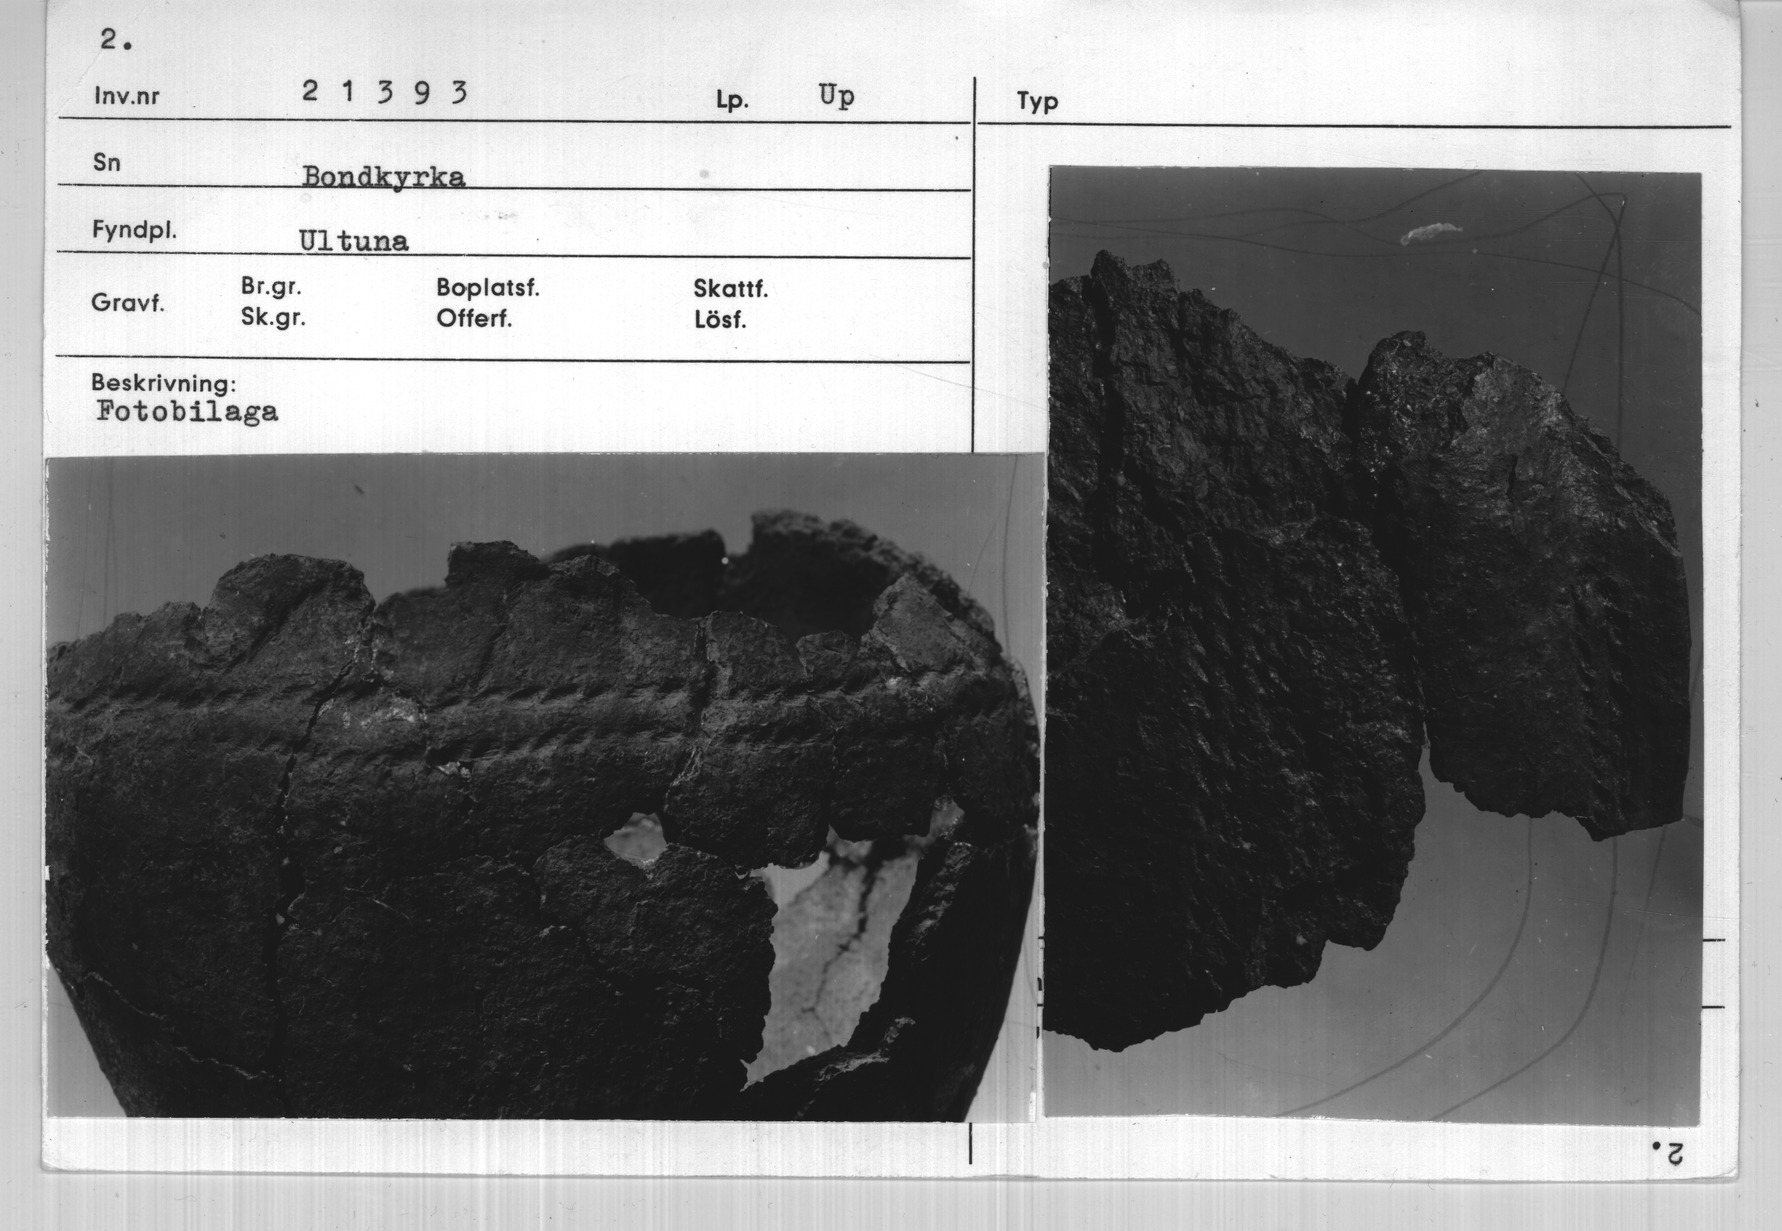 2.
Inv.nr 2 1 3 9 3 Lp. Up Typ
Sn Bondkyrka
Fyndpl. Ultuna
Gravf. Br.gr. Boplatsf. Skattf.
Sk.gr. Offerf. Lösf.
Beskrivning:
Fotobilaga
2.